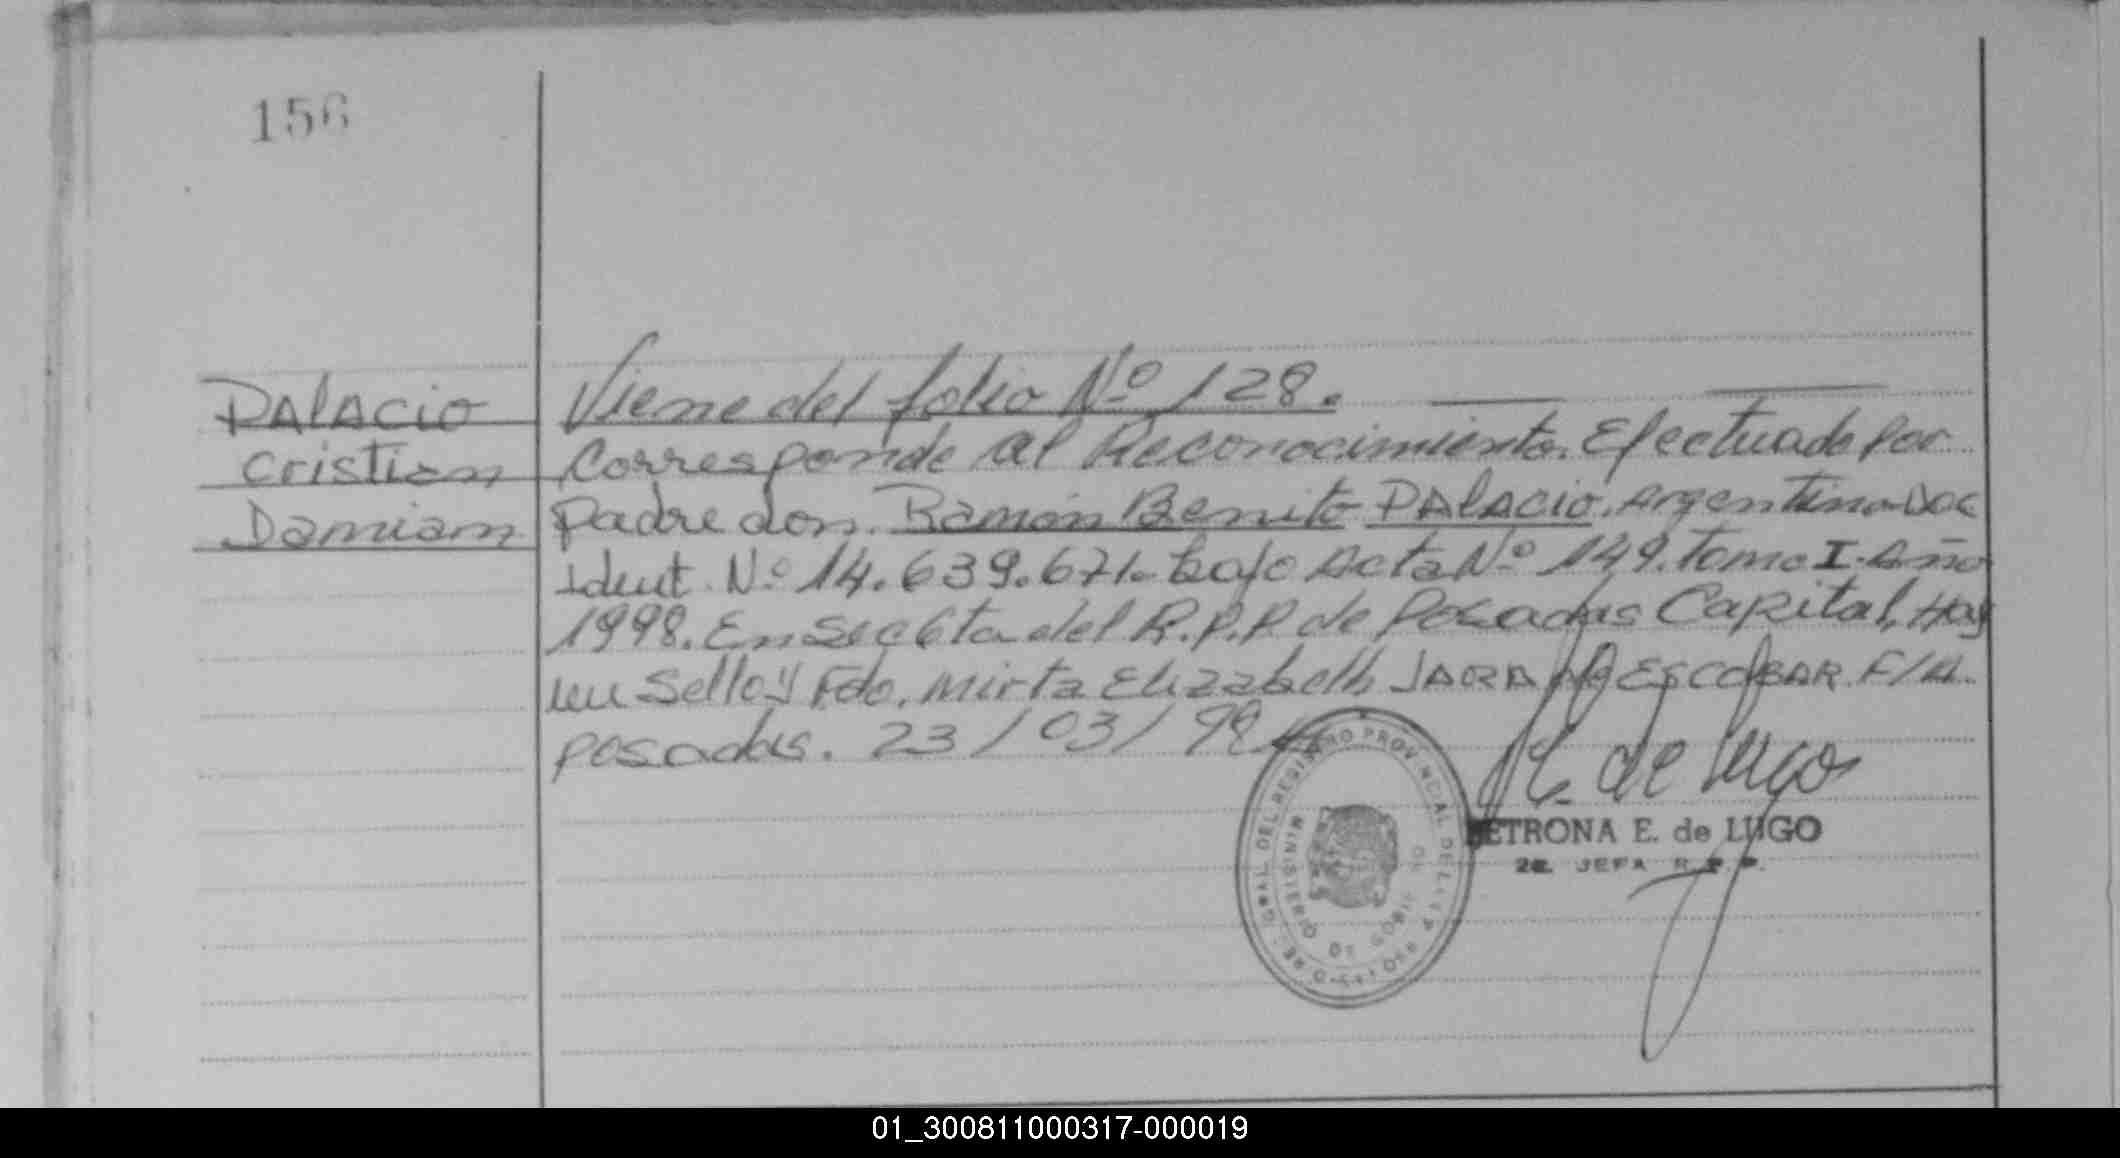 156
PALACIO
Cristian
Damian
Viene del folio Nº 128.
Corresponde al Reconocimiento. Efectuado por
padre don. Ramón Benito PALACIO. Argentino Doc
Ident. Nº 14.639.671. bajo Acta Nº 149. Tomo I. Año
1998. En Sec 6ta del R.P.P. de Posadas Capital, Hay
un Sello y Fdo. Mirta Elizabeth JARA de ESCOBAR. F/A.
posadas. 23/03/98
E. de Lugo
PETRONA E. de LUGO
2a. JEFA R.P.P.
GRAL. DEL REGISTRO PROVINCIAL DE LAS PERSONAS
MINISTERIO DE GOBIERNO
01_300811000317-000019